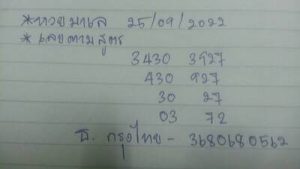 *หวยมาเล 25/09/2022
*เลขตามสูตร
3430 3927
430 927
30 27
03 72
ธ. กรุงไทย - 3680680562